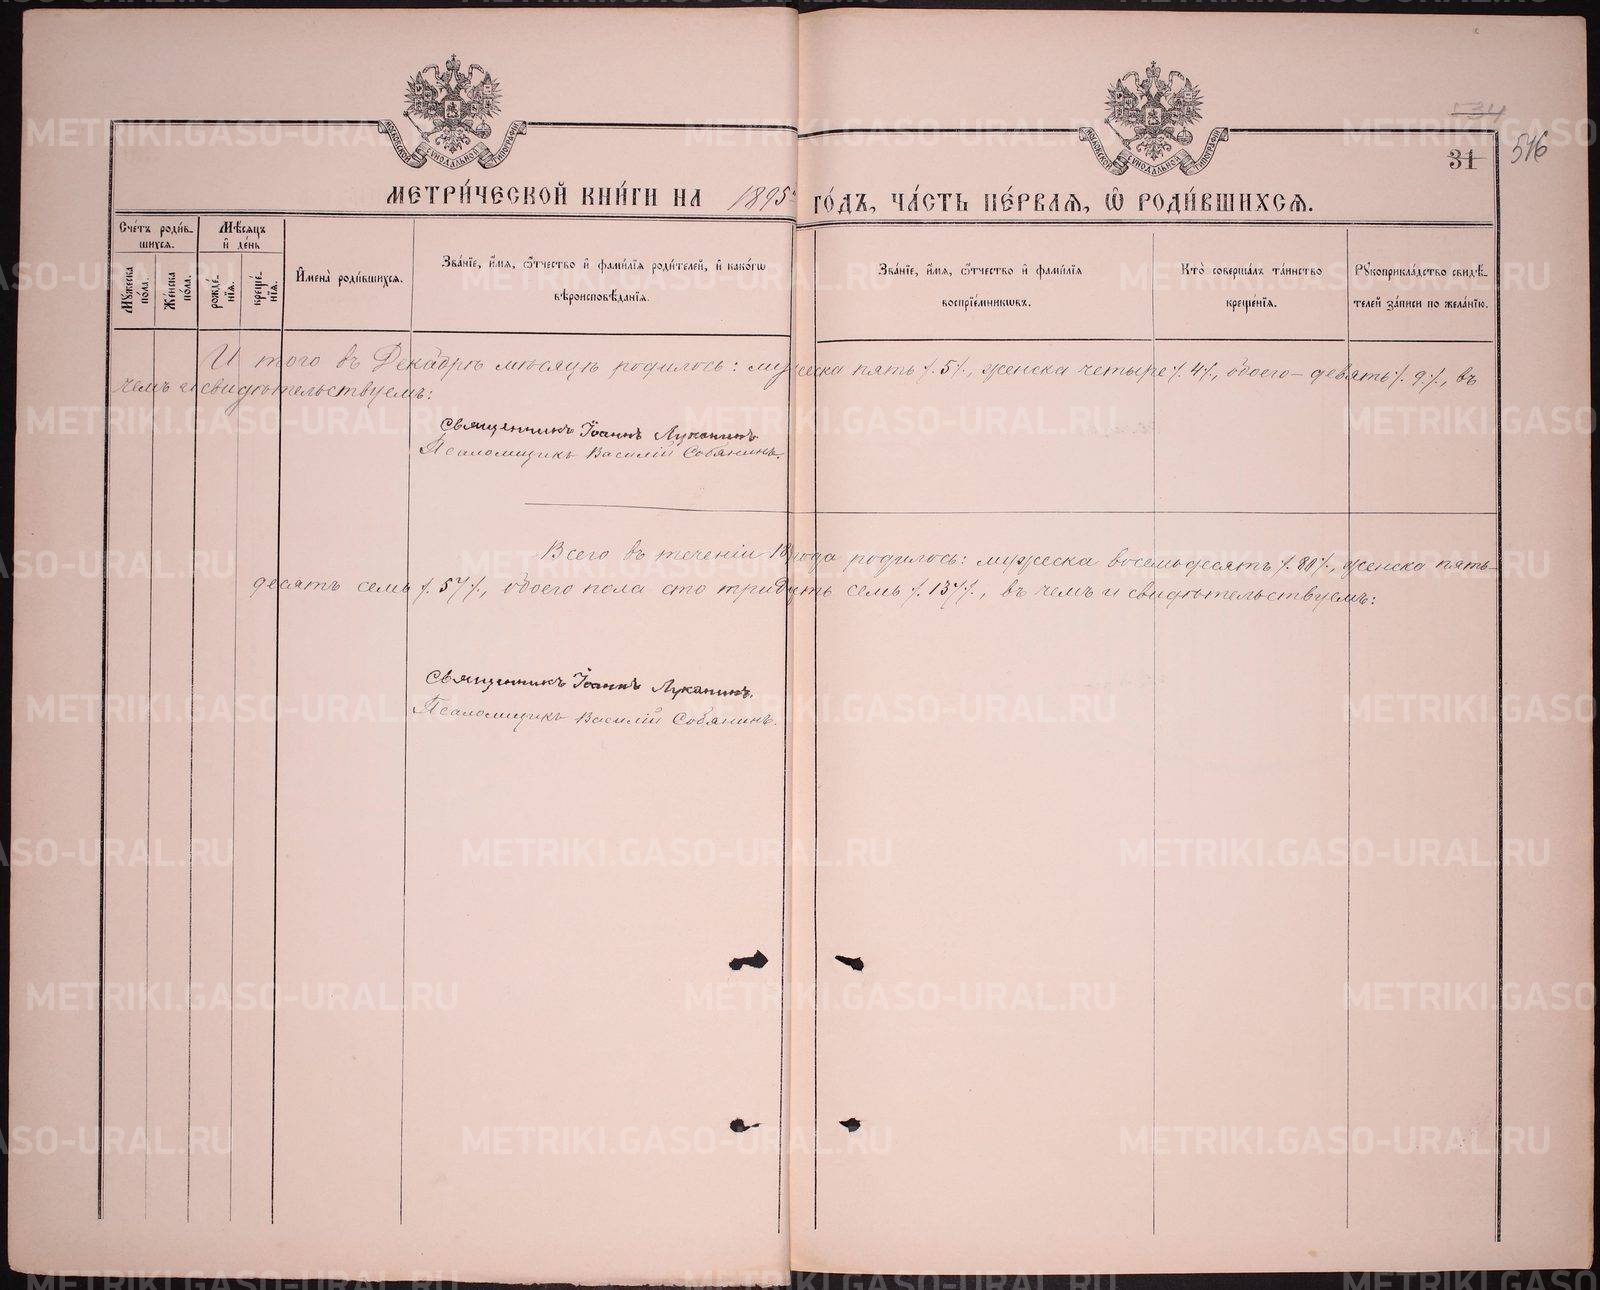 МОСКОВСКОЙ СѴНОДАЛЬНОЙ ТИПОГРАФІИ
МОСКОВСКОЙ СѴНОДАЛЬНОЙ ТИПОГРАФІИ
534
31
546
МЕТРИ́ЧЕСКОЙ КНИ́ГИ НА 1895й ГО́ДЪ, ЧА́СТЬ ПЕ́РВАЯ, Ѽ РОДИ́ВШИХСЯ.
Сче́тъ роди́в-
шихся.
Мꙋжеска пола.
Же́нска пола.
Мѣ́сяцъ
и҆ де́нь
рожде́-
нїя.
креще́-
нїя.
И҆мена̀ роди́вшихся.
Зва́нїе, и҆́мя, ѻ҆́тчество и҆ фами́лїя роди́телей, и҆ како́гѡ
вѣроисповѣ́данїя.
Зва́нїе, и҆́мя, ѻ҆́тчество и҆ фами́лїя
воспрїе́мникѡвъ.
Кто̀ соверша́лъ та́инство
креще́нїя.
Рꙋкоприкла́дство свидѣ́-
телей за́писи по жела́нїю.
И того въ Декабрѣ мѣсяцѣ родилось: мужеска пять /.5/., женска четыре /.4/., обоего – девять /.9/., въ
чемъ и свидѣтельствуемъ:
Священникъ Іоаннъ Луканинъ
Псаломщикъ Василій Собянинъ.
Всего въ теченіи 18 года родилось: мужеска восемьдесятъ /.80/., женска пять-
десятъ семь /.57/., обоего пола сто тридцать семь /.137/., въ чемъ и свидѣтельствуемъ:
Священникъ Іоаннъ Луканинъ.
Псаломщикъ Василій Собянинъ.
METRIKI.GASO-URAL.RU